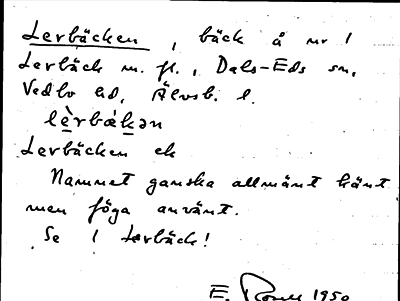 Lerbäcken, bäck å nr 1
Lerbäck m. fl., Dals-Eds sn,
Vedbo hd, Älvsb. l.
lè̱rbäḵən
Lerbäcken ek
Namnet ganska allmänt känt
men föga använt.
Se 1 Lerbäck!
E. 1950